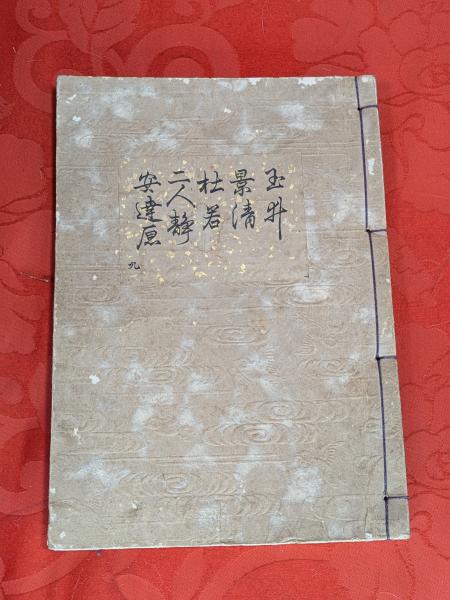 玉井
景清
杜若
二人静
安達原
九